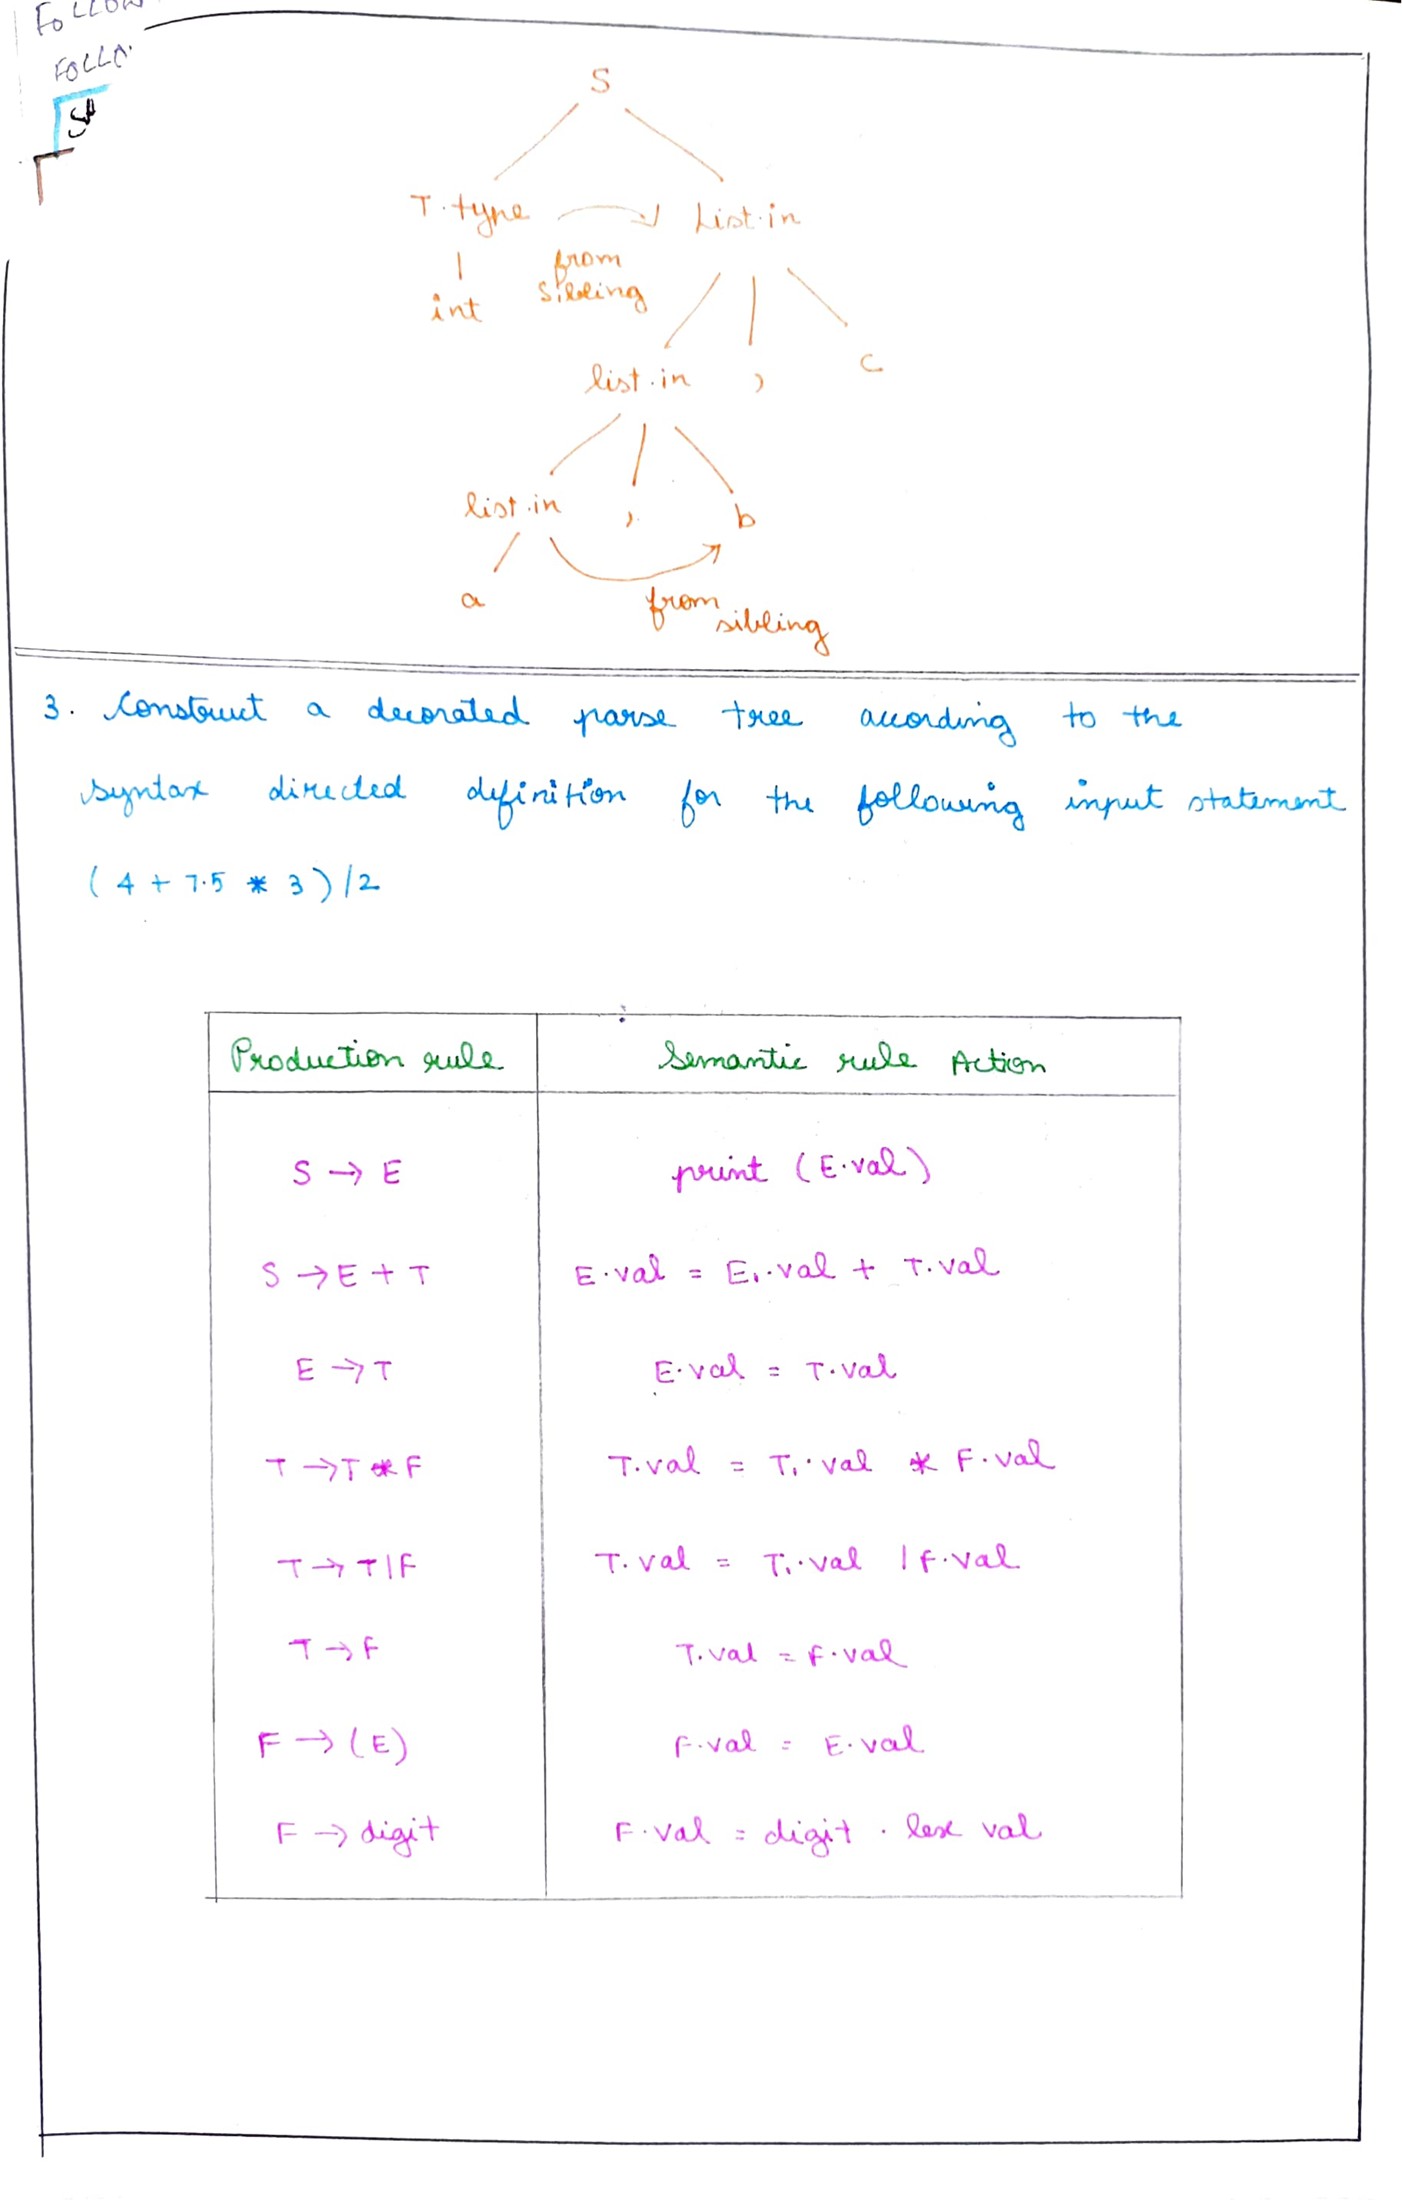 S
T.type List.in
from
sibling
int
list.in , c
list.in , b
a
from
sibling
3. Construct a decorated parse tree according to the
syntax directed definition for the following input statement
( 4 + 7.5 * 3 ) / 2
Production rule Semantic rule Action
S → E print (E.val)
S → E + T E.val = E₁.val + T.val
E → T E.val = T.val
T → T * F T.val = T₁.val * F.val
T → T / F T.val = T₁.val / F.val
T → F T.val = F.val
F → (E) F.val = E.val
F → digit F.val = digit . lex val